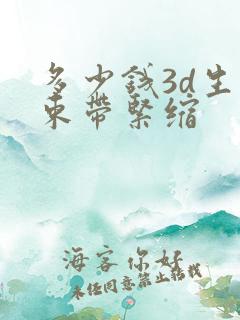 多少錢3d生
束帶緊縮
海客你好
未经同意禁止转载